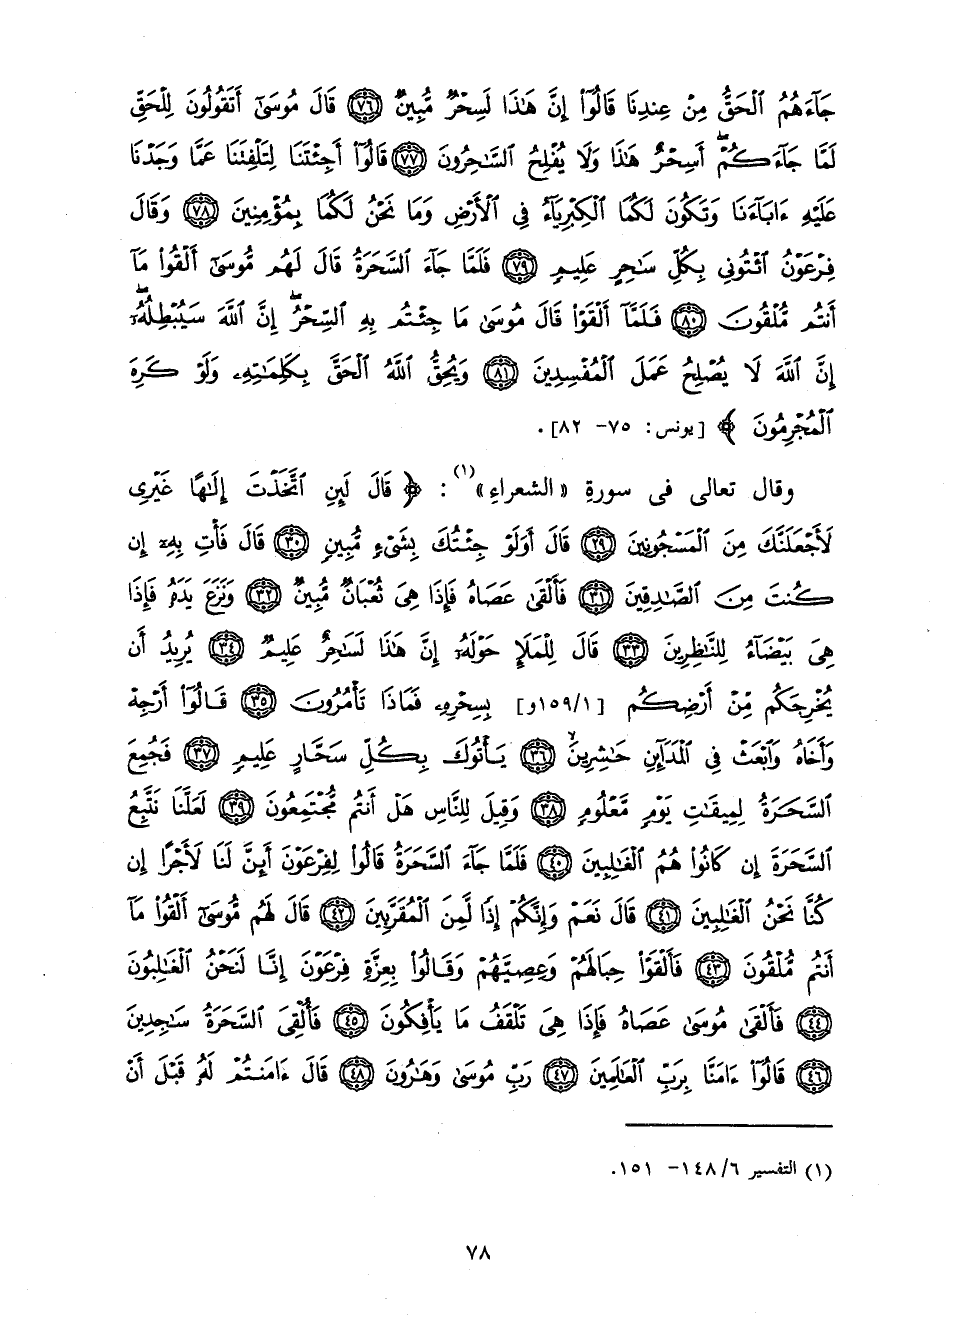 جَآءَهُمُ ٱلْحَقُّ مِنْ عِندِنَا قَالُوٓا۟ إِنَّ هَٰذَا لَسِحْرٌ مُّبِينٌ ﴿٧٦﴾ قَالَ مُوسَىٰٓ أَتَقُولُونَ لِلْحَقِّ
لَمَّا جَآءَكُمْ ۖ أَسِحْرٌ هَٰذَا وَلَا يُفْلِحُ ٱلسَّٰحِرُونَ ﴿٧٧﴾ قَالُوٓا۟ أَجِئْتَنَا لِتَلْفِتَنَا عَمَّا وَجَدْنَا
عَلَيْهِ ءَابَآءَنَا وَتَكُونَ لَكُمَا ٱلْكِبْرِيَآءُ فِى ٱلْأَرْضِ وَمَا نَحْنُ لَكُمَا بِمُؤْمِنِينَ ﴿٧٨﴾ وَقَالَ
فِرْعَوْنُ ٱئْتُونِى بِكُلِّ سَٰحِرٍ عَلِيمٍ ﴿٧٩﴾ فَلَمَّا جَآءَ ٱلسَّحَرَةُ قَالَ لَهُم مُّوسَىٰٓ أَلْقُوا۟ مَآ
أَنتُم مُّلْقُونَ ﴿٨٠﴾ فَلَمَّآ أَلْقَوْا۟ قَالَ مُوسَىٰ مَا جِئْتُم بِهِ ٱلسِّحْرُ ۖ إِنَّ ٱللَّهَ سَيُبْطِلُهُۥٓ ۖ
إِنَّ ٱللَّهَ لَا يُصْلِحُ عَمَلَ ٱلْمُفْسِدِينَ ﴿٨١﴾ وَيُحِقُّ ٱللَّهُ ٱلْحَقَّ بِكَلِمَٰتِهِۦ وَلَوْ كَرِهَ
ٱلْمُجْرِمُونَ ﴾ [يونس: ٧٥– ٨٢].
وقال تعالى فى سورةِ «الشعراءِ»(١) : ﴿ قَالَ لَئِنِ ٱتَّخَذْتَ إِلَٰهًا غَيْرِى
لَأَجْعَلَنَّكَ مِنَ ٱلْمَسْجُونِينَ ﴿٢٩﴾ قَالَ أَوَلَوْ جِئْتُكَ بِشَىْءٍ مُّبِينٍ ﴿٣٠﴾ قَالَ فَأْتِ بِهِۦٓ إِن
كُنتَ مِنَ ٱلصَّٰدِقِينَ ﴿٣١﴾ فَأَلْقَىٰ عَصَاهُ فَإِذَا هِىَ ثُعْبَانٌ مُّبِينٌ ﴿٣٢﴾ وَنَزَعَ يَدَهُۥ فَإِذَا
هِىَ بَيْضَآءُ لِلنَّٰظِرِينَ ﴿٣٣﴾ قَالَ لِلْمَلَإِ حَوْلَهُۥٓ إِنَّ هَٰذَا لَسَٰحِرٌ عَلِيمٌ ﴿٣٤﴾ يُرِيدُ أَن
يُخْرِجَكُم مِّنْ أَرْضِكُم [١٥٩/١و] بِسِحْرِهِۦ فَمَاذَا تَأْمُرُونَ ﴿٣٥﴾ قَالُوٓا۟ أَرْجِهْ
وَأَخَاهُ وَٱبْعَثْ فِى ٱلْمَدَآئِنِ حَٰشِرِينَ ﴿٣٦﴾ يَأْتُوكَ بِكُلِّ سَحَّارٍ عَلِيمٍ ﴿٣٧﴾ فَجُمِعَ
ٱلسَّحَرَةُ لِمِيقَٰتِ يَوْمٍ مَّعْلُومٍ ﴿٣٨﴾ وَقِيلَ لِلنَّاسِ هَلْ أَنتُم مُّجْتَمِعُونَ ﴿٣٩﴾ لَعَلَّنَا نَتَّبِعُ
ٱلسَّحَرَةَ إِن كَانُوا۟ هُمُ ٱلْغَٰلِبِينَ ﴿٤٠﴾ فَلَمَّا جَآءَ ٱلسَّحَرَةُ قَالُوا۟ لِفِرْعَوْنَ أَئِنَّ لَنَا لَأَجْرًا إِن
كُنَّا نَحْنُ ٱلْغَٰلِبِينَ ﴿٤١﴾ قَالَ نَعَمْ وَإِنَّكُمْ إِذًا لَّمِنَ ٱلْمُقَرَّبِينَ ﴿٤٢﴾ قَالَ لَهُم مُّوسَىٰٓ أَلْقُوا۟ مَآ
أَنتُم مُّلْقُونَ ﴿٤٣﴾ فَأَلْقَوْا۟ حِبَالَهُمْ وَعِصِيَّهُمْ وَقَالُوا۟ بِعِزَّةِ فِرْعَوْنَ إِنَّا لَنَحْنُ ٱلْغَٰلِبُونَ
﴿٤٤﴾ فَأَلْقَىٰ مُوسَىٰ عَصَاهُ فَإِذَا هِىَ تَلْقَفُ مَا يَأْفِكُونَ ﴿٤٥﴾ فَأُلْقِىَ ٱلسَّحَرَةُ سَٰجِدِينَ
﴿٤٦﴾ قَالُوٓا۟ ءَامَنَّا بِرَبِّ ٱلْعَٰلَمِينَ ﴿٤٧﴾ رَبِّ مُوسَىٰ وَهَٰرُونَ ﴿٤٨﴾ قَالَ ءَامَنتُمْ لَهُۥ قَبْلَ أَنْ
(١) التفسير ١٤٨/٦– ١٥١.
٧٨